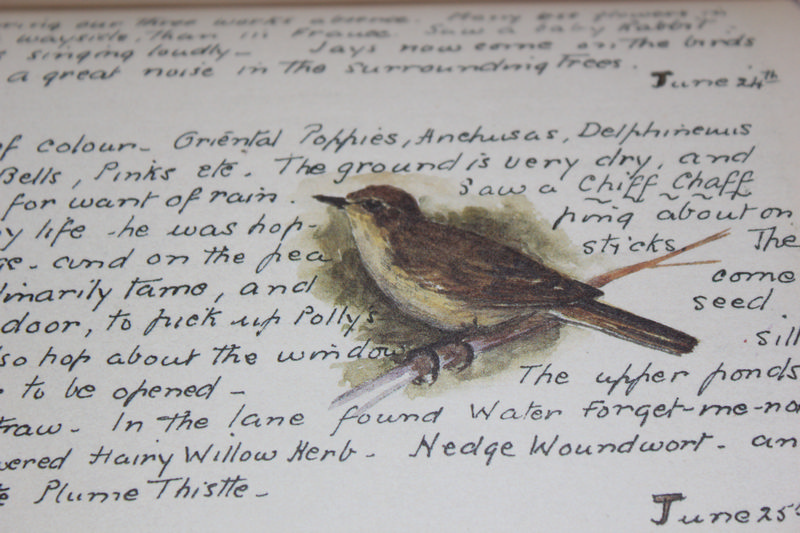 our three weeks absence. Many
wayside, Than in France. Saw a baby Rabbit.
singing loudly - Jays now come on The birds
a great noise in the surrounding Trees.
June 24th
of colour. Oriental Poppies, Anchusas, Delphineums
Bells, Pinks etc. The ground is very dry, and
for want of rain. Saw a Chiff Chaff
life - he was hop- ping about on
and on the pea sticks. The
tame, and come
door, to pick up Polly's seed.
hop about the window sill
to be opened - The upper ponds
In the lane found Water Forget-me-no
Hairy Willow Herb - Hedge Woundwort - an
Plume Thistle -
June 25